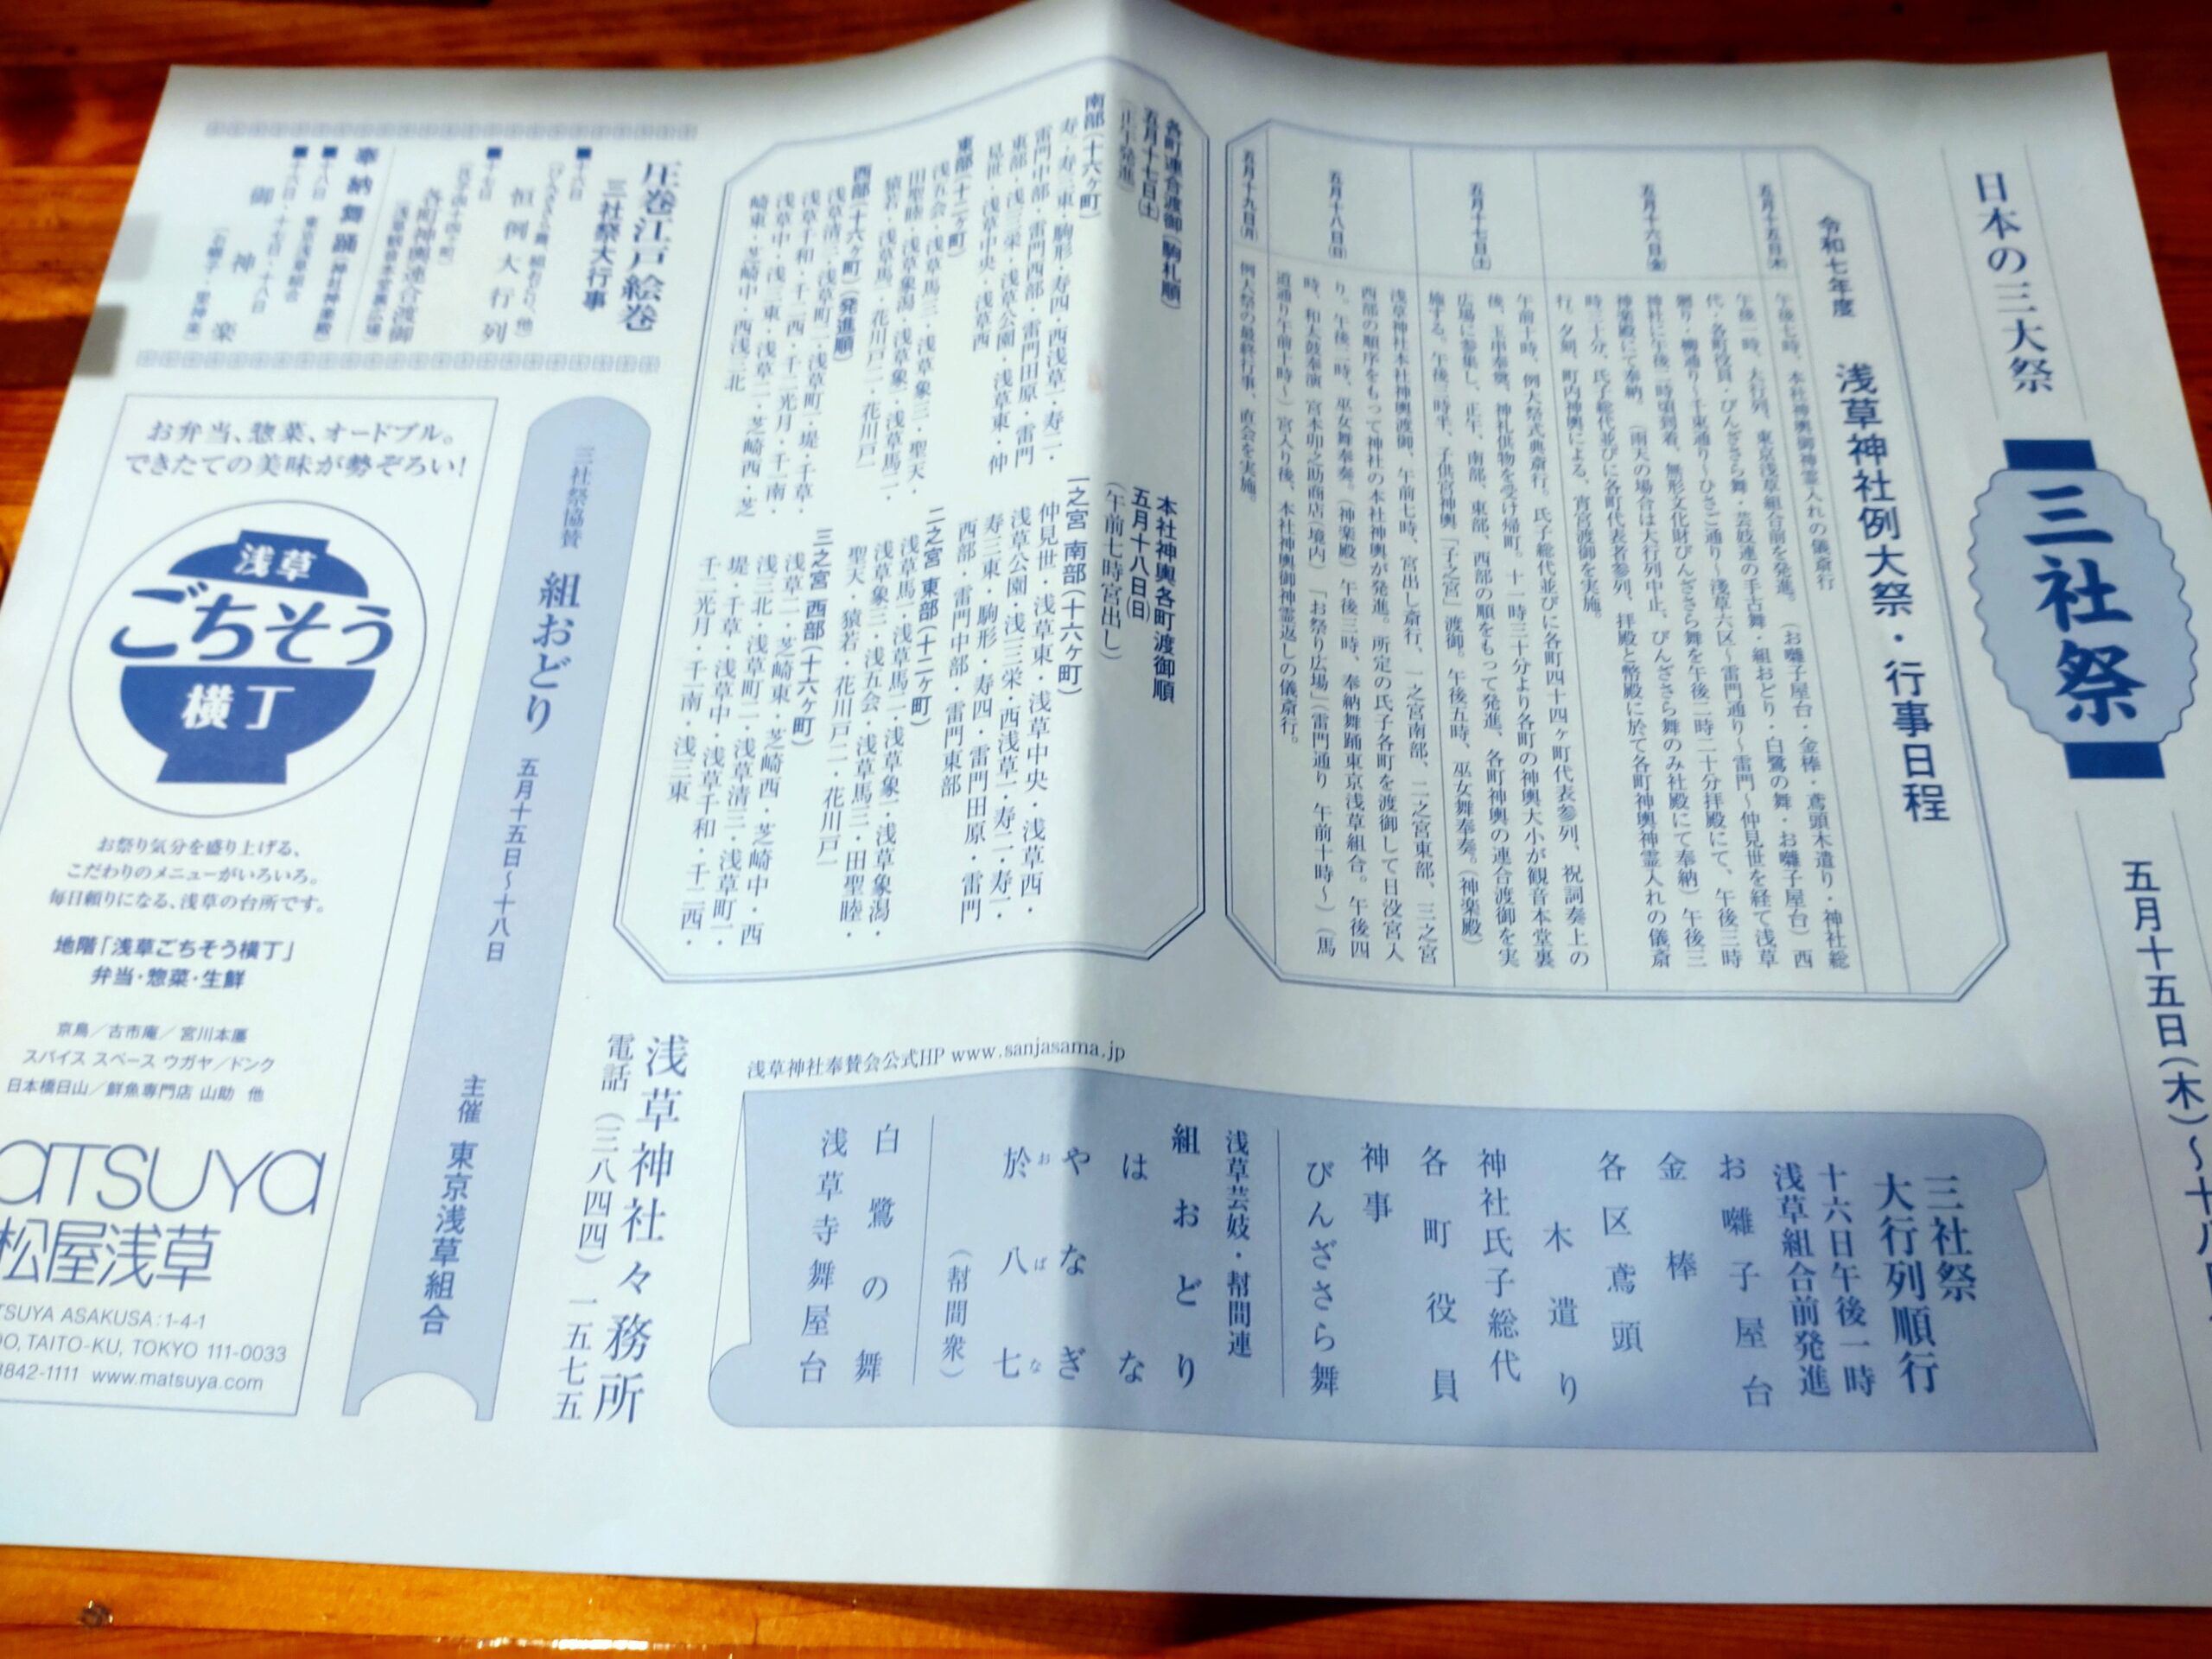 日本の三大祭
三社祭
五月十五日(木)〜十八
令和七年度
浅草神社例大祭・行事日程
五月十五日㈭
午後七時、本社神輿御神霊入れの儀斎行
五月十六日㈮
午後一時、大行列、東京浅草組合前を発進。(お囃子屋台・金棒・鳶頭木遣り・神社総
代・各町役員・びんざさら舞・芸妓連の手古舞・組おどり・白鷺の舞・お囃子屋台)西
廻り・柳通り〜千束通り〜ひさご通り〜浅草六区〜雷門通り〜雷門〜仲見世を経て浅草
神社に午後二時頃到着。無形文化財びんざさら舞を午後二時二十分拝殿にて、午後三時
神楽殿にて奉納。(雨天の場合は大行列中止。びんざさら舞のみ社殿にて奉納)午後三
時三十分、氏子総代並びに各町代表者参列、拝殿と幣殿に於て各町神輿神霊入れの儀斎
行。夕刻、町内神輿による、宵宮渡御を実施。
五月十七日㈯
午前十時、例大祭式典斎行。氏子総代並びに各町四十四ヶ町代表参列、祝詞奏上の
後、玉串奉奠、神札供物を受け帰町。十一時三十分より各町の神輿大小が観音本堂裏
広場に参集し、正午、南部、東部、西部の順をもって発進、各町神輿の連合渡御を実
施する。午後三時半、子供宮神輿「子之宮」渡御。午後五時、巫女舞奉奏。(神楽殿)
五月十八日㈰
浅草神社本社神輿渡御、午前七時、宮出し斎行、一之宮南部、二之宮東部、三之宮
西部の順序をもって神社の本社神輿が発進。所定の氏子各町を渡御して日没宮入
り。午後二時、巫女舞奉奏。(神楽殿)午後三時、奉納舞踊東京浅草組合。午後四
時、和太鼓奉演 宮本卯之助商店(境内)「お祭り広場」(雷門通り 午前十時〜)(馬
道通り午前十時〜)宮入り後、本社神輿御神霊返しの儀斎行。
五月十九日㈪
例大祭の最終行事、直会を実施。
各町連合渡御(駒札順)
五月十七日㈯
(正午発進)
南部(十六ヶ町)
寿一・寿三東・駒形・寿四・西浅草一・寿二・
雷門中部・雷門西部・雷門田原・雷門
東部・浅三栄・浅草公園・浅草東・仲
見世・浅草中央・浅草西
東部(十二ヶ町)
浅五会・浅草馬三・浅草象三・聖天・
田聖睦・浅草象潟・浅草象一・浅草馬二・
猿若・浅草馬一・花川戸二・花川戸一
西部(十六ヶ町)(発進順)
浅草清三・浅草町二・浅草町一・堤・千草・
浅草千和・千二西・千二光月・千一南・
浅草中・浅三東・浅草二・芝崎西・芝
崎東・芝崎中・西浅三北
本社神輿各町渡御順
五月十八日㈰
(午前七時宮出し)
一之宮 南部(十六ヶ町)
仲見世・浅草東・浅草中央・浅草西・
浅草公園・浅三栄・西浅草一・寿二・寿一・
寿三東・駒形・寿四・雷門田原・雷門
西部・雷門中部・雷門東部
二之宮 東部(十二ヶ町)
浅草馬一・浅草馬二・浅草象一・浅草象潟・
浅草象三・浅五会・浅草馬三・田聖睦・
聖天・猿若・花川戸二・花川戸一
三之宮 西部(十六ヶ町)
浅草二・芝崎東・芝崎西・芝崎中・西
浅三北・浅草町二・浅草清三・浅草町一・
堤・千草・浅草中・浅草千和・千二西・
千二光月・千一南・浅三東
浅草神社奉賛会公式HP www.sanjasama.jp
三社祭
大行列順行
十六日午後一時
浅草組合前発進
お囃子屋台
金棒
各区鳶頭
木遣り
神社氏子総代
各町役員
神事
びんざさら舞
浅草芸妓・幇間連
組おどり
はな
やなぎ
於八七
おばな
(幇間衆)
白鷺の舞
浅草寺舞屋台
浅草神社々務所
電話(三八四四)一五七五
圧巻江戸絵巻
三社祭大行事
■十六日
(びんざさら舞、組おどり、他)
恒例大行列
■十七日
(氏子四十四ヶ町)
各町神輿連合渡御
(浅草観音本堂裏広場)
奉納舞踊(神社神楽殿)
■十八日 東京浅草組合
■十六日・十七日・十八日
御神楽
(お囃子・里神楽)
三社祭協賛
組おどり
五月十五日〜十八日
主催
東京浅草組合
お弁当、惣菜、オードブル。
できたての美味が勢ぞろい!
浅草
ごちそう
横丁
お祭り気分を盛り上げる、
こだわりのメニューがいろいろ。
毎日頼りになる、浅草の台所です。
地階「浅草ごちそう横丁」
弁当・惣菜・生鮮
京鳥/古市庵/宮川本廛
スパイス スペース ウガヤ/ドンク
日本橋日山/鮮魚専門店 山助 他
MATSUYA
松屋浅草
TSUYA ASAKUSA:1-4-1
DO, TAITO-KU, TOKYO 111-0033
3842-1111 www.matsuya.com